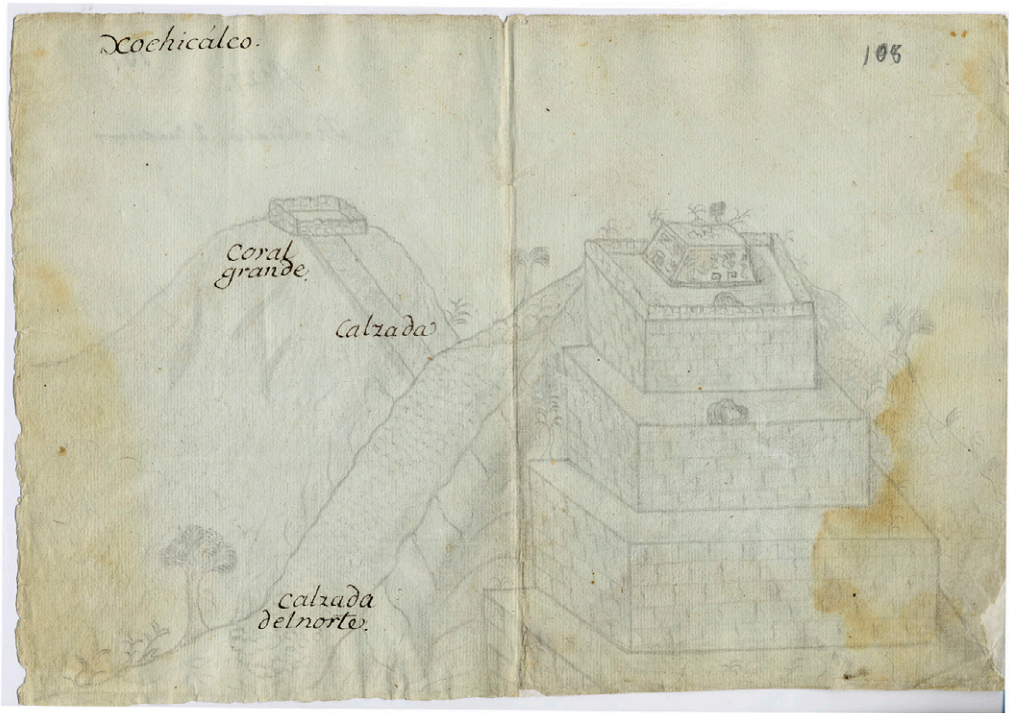 Xochicálco.
108
Coral
grande.
Calzada
calzada
delnorte.